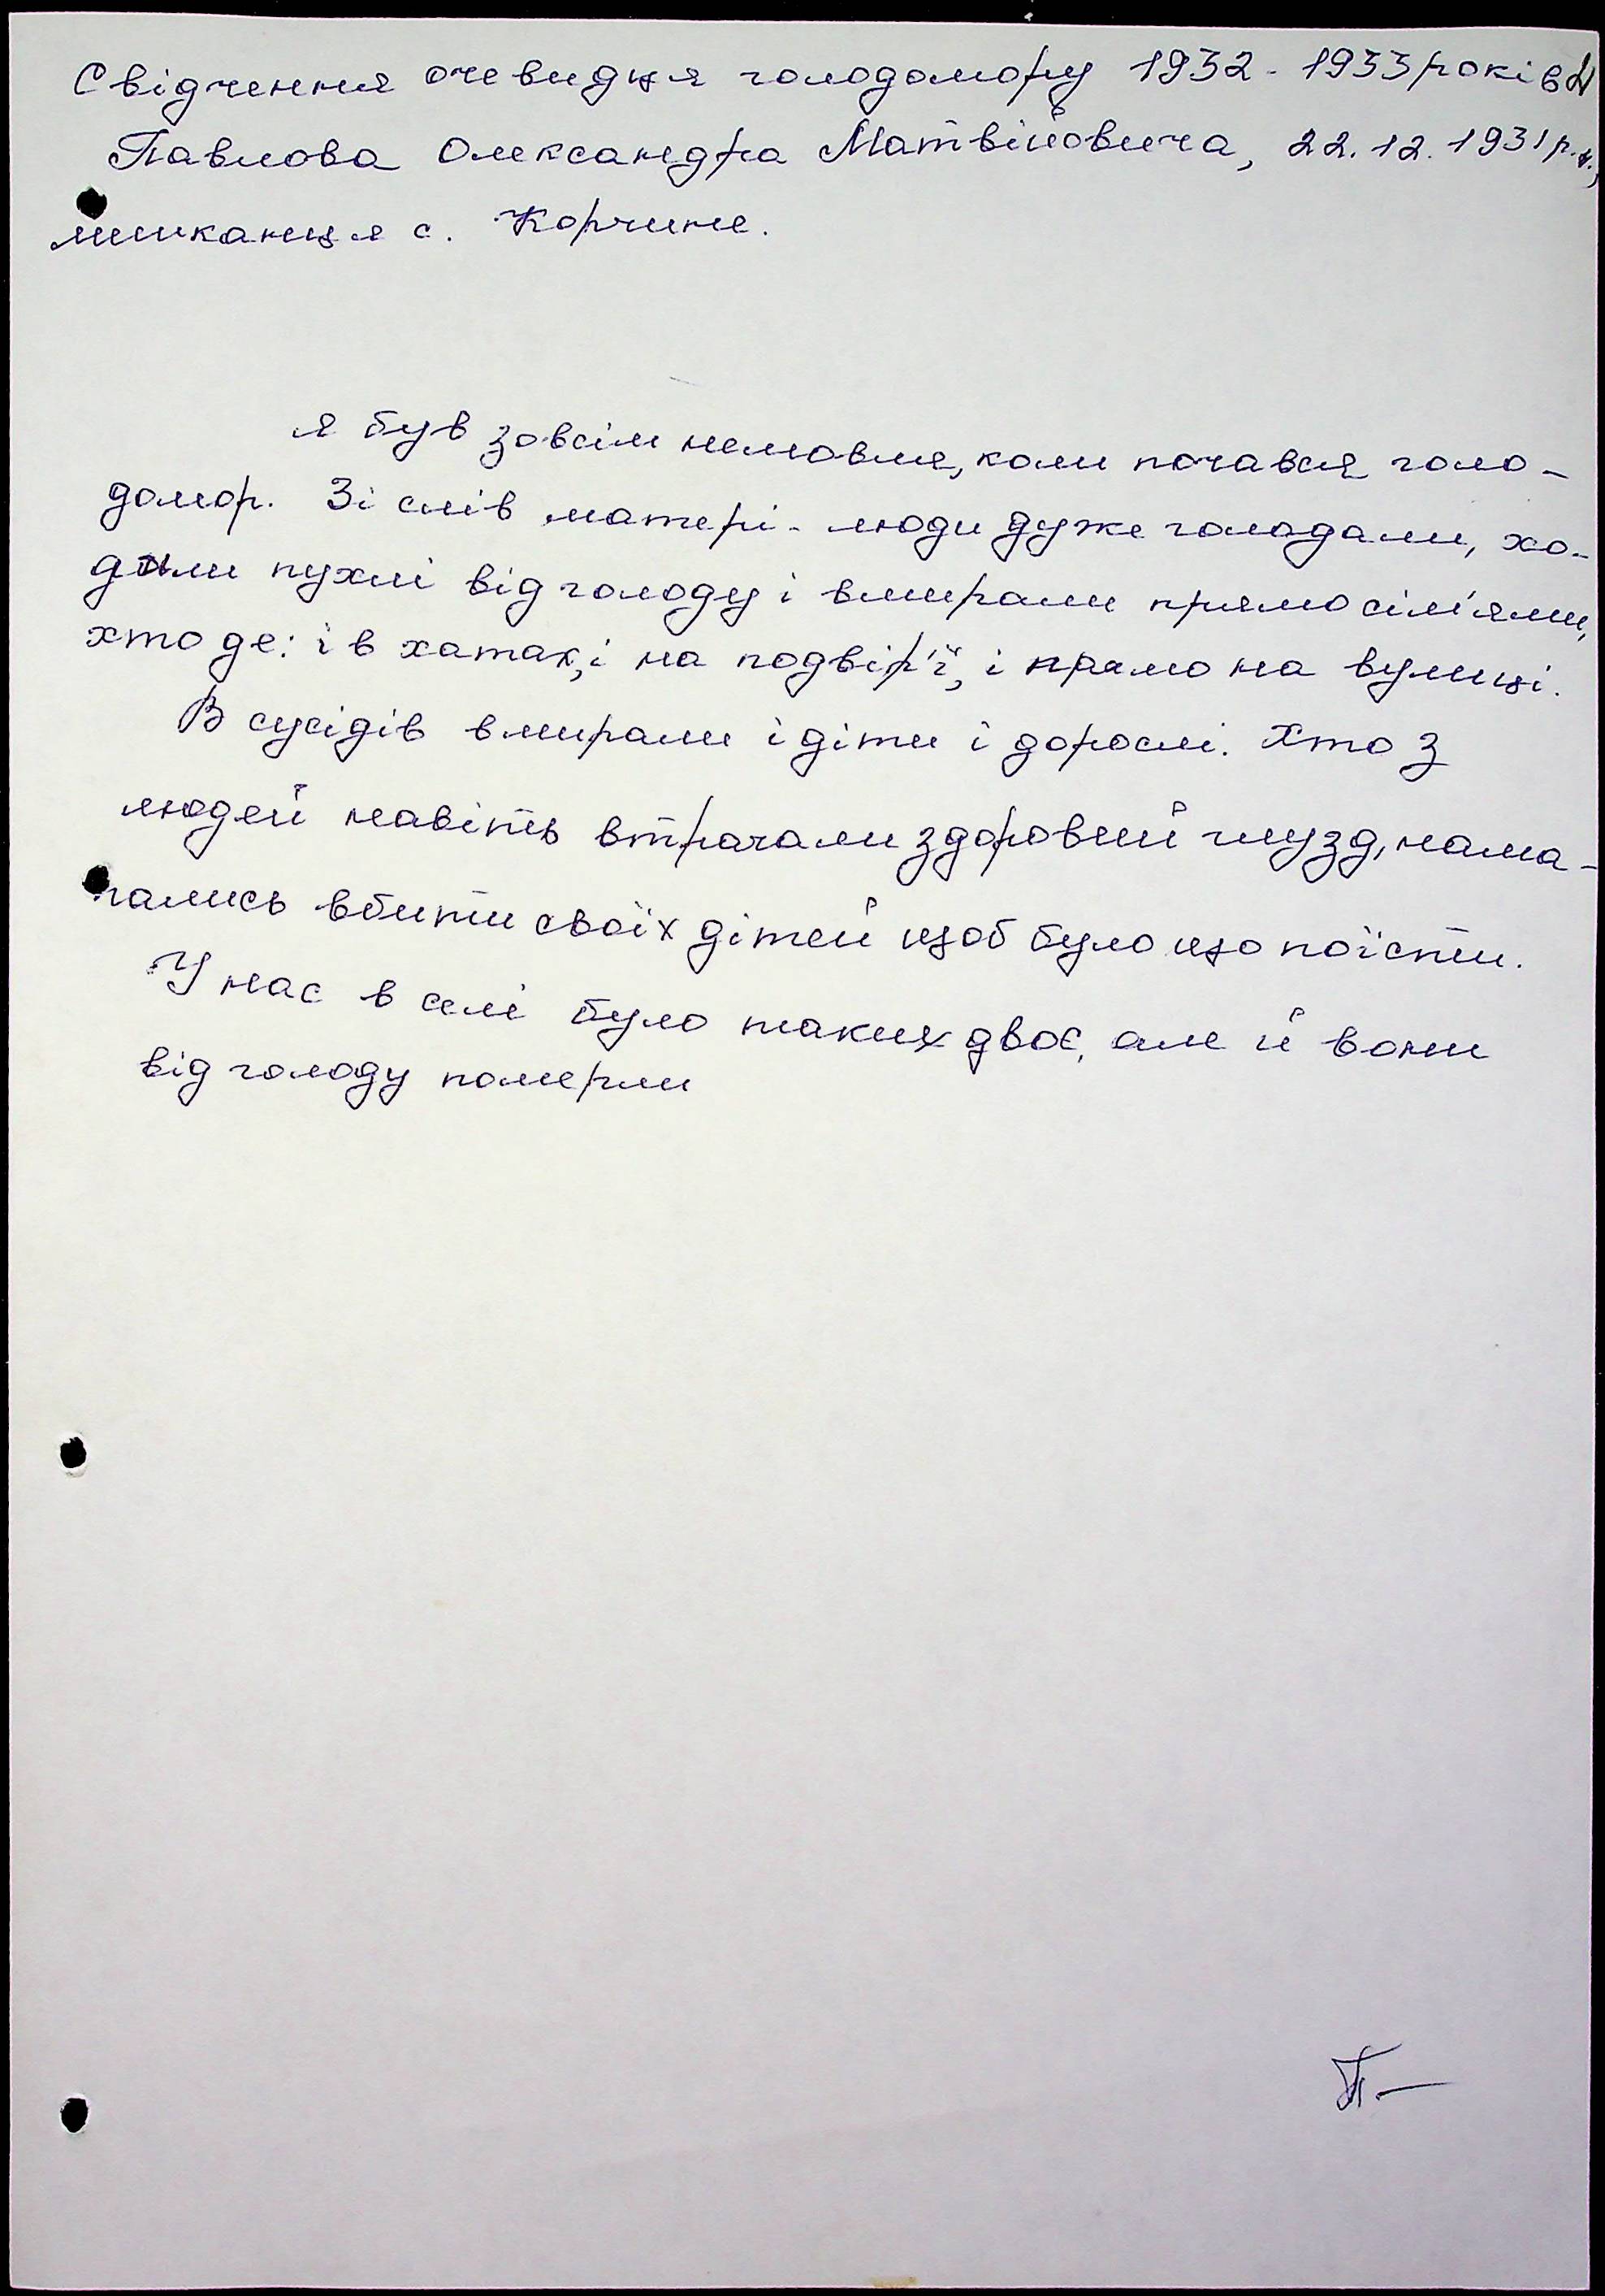 Свідчення очевидця голодомору 1932 - 1933 років
Павлова Олександра Матвійовича, 22.12.1931 р.н.,
мешканця с. Корчине.
я був зовсім немовля, коли почався голо-
домор. Зі слів матері - люди дуже голодали, хо-
дили пухлі від голоду і вмирали прямо сім'ями,
хто де: і в хатах, і на подвір'ї, і прямо на вулиці.
В сусідів вмирали і діти і дорослі. Хто з
людей навіть втрачали здоровий глузд, нама-
гались вбити своїх дітей щоб було що поїсти.
У нас в селі було таких двоє, але й вони
від голоду померли